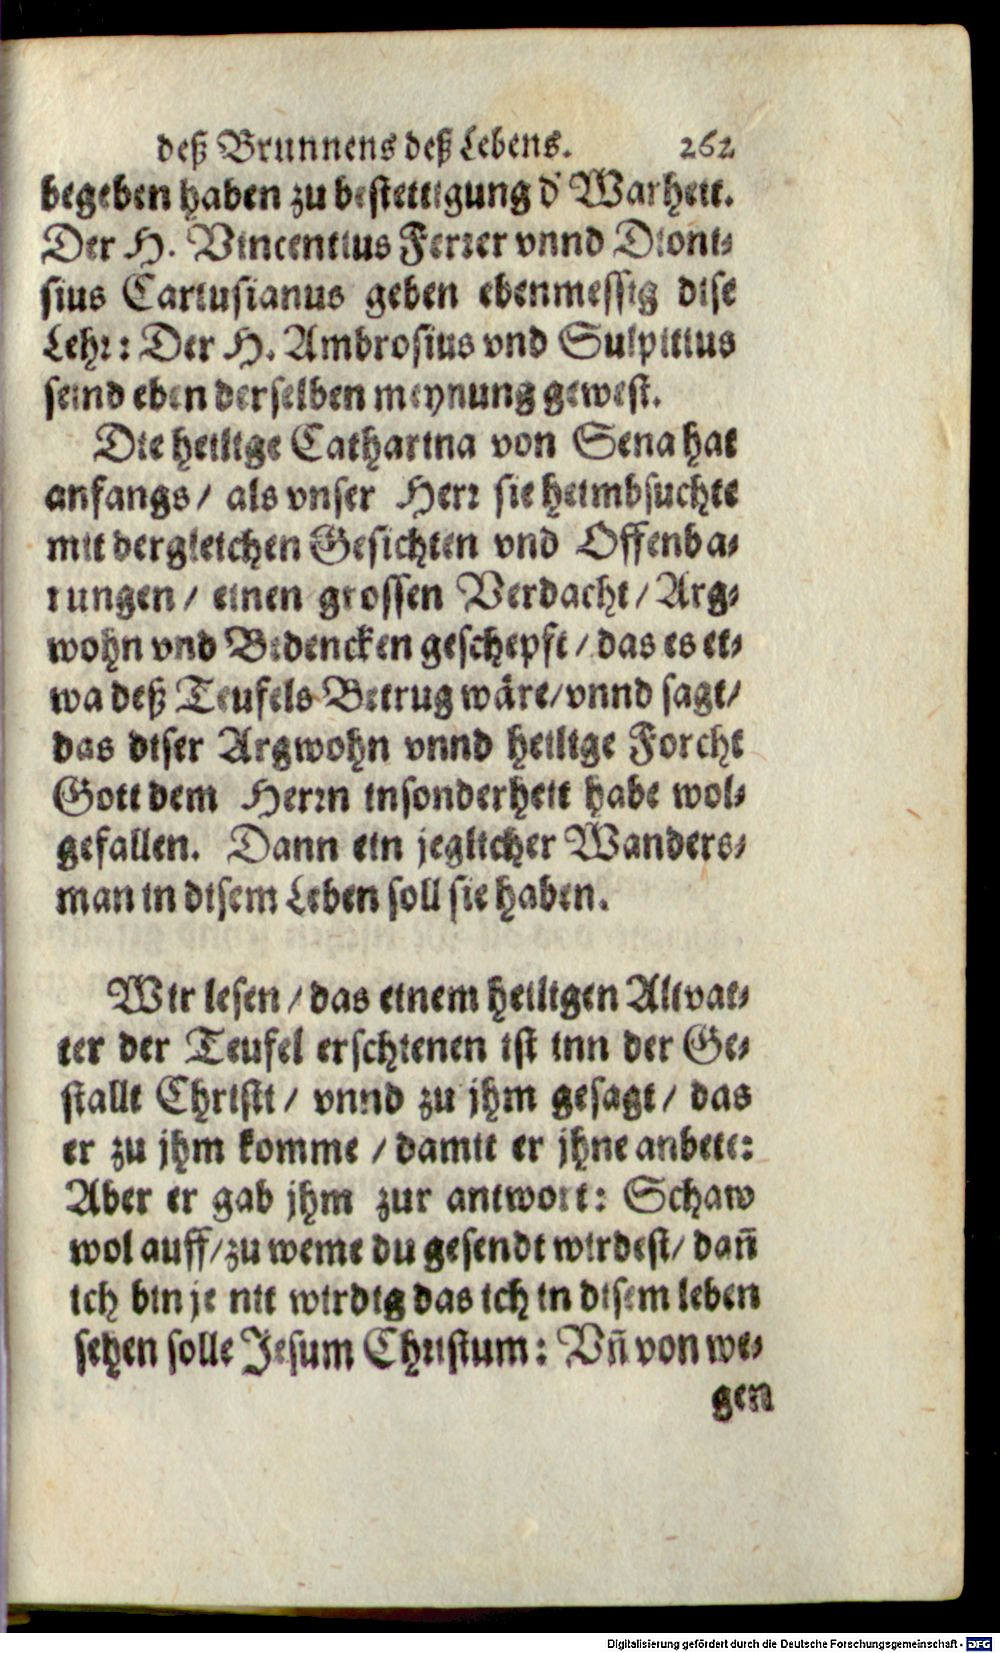 deß Brunnens deß Lebens. 262
begeben haben zu bestettigung d' Warheit.
Der H. Vincentius Ferrer vnnd Dioni-
sius Cartusianus geben ebenmessig dise
Lehr: Der H. Ambrosius vnd Sulpitius
seind eben derselben meynung gewest.
Die heilige Catharina von Sena hat
anfangs / als vnser Herr sie heimbsuchte
mit dergleichen Gesichten vnd Offenba-
rungen / einen grossen Verdacht / Arg-
wohn vnd Bedencken geschepft / das es et-
wa deß Teufels Betrug wäre / vnnd sagt /
das diser Argwohn vnnd heilige Forcht
Gott dem Herrn insonderheit habe wol-
gefallen. Dann ein jeglicher Wanders-
man in disem Leben soll sie haben.
Wir lesen / das einem heiligen Altvat-
ter der Teufel erschienen ist inn der Ge-
stallt Christi / vnnd zu jhm gesagt / das
er zu jhm komme / damit er jhne anbett:
Aber er gab jhm zur antwort: Schaw
wol auff / zu weme du gesendt wirdest / dañ
ich bin je nit wirdig das ich in disem leben
sehen solle Jesum Christum: Vñ von we-
gen
Digitalisierung gefördert durch die Deutsche Forschungsgemeinschaft - DFG